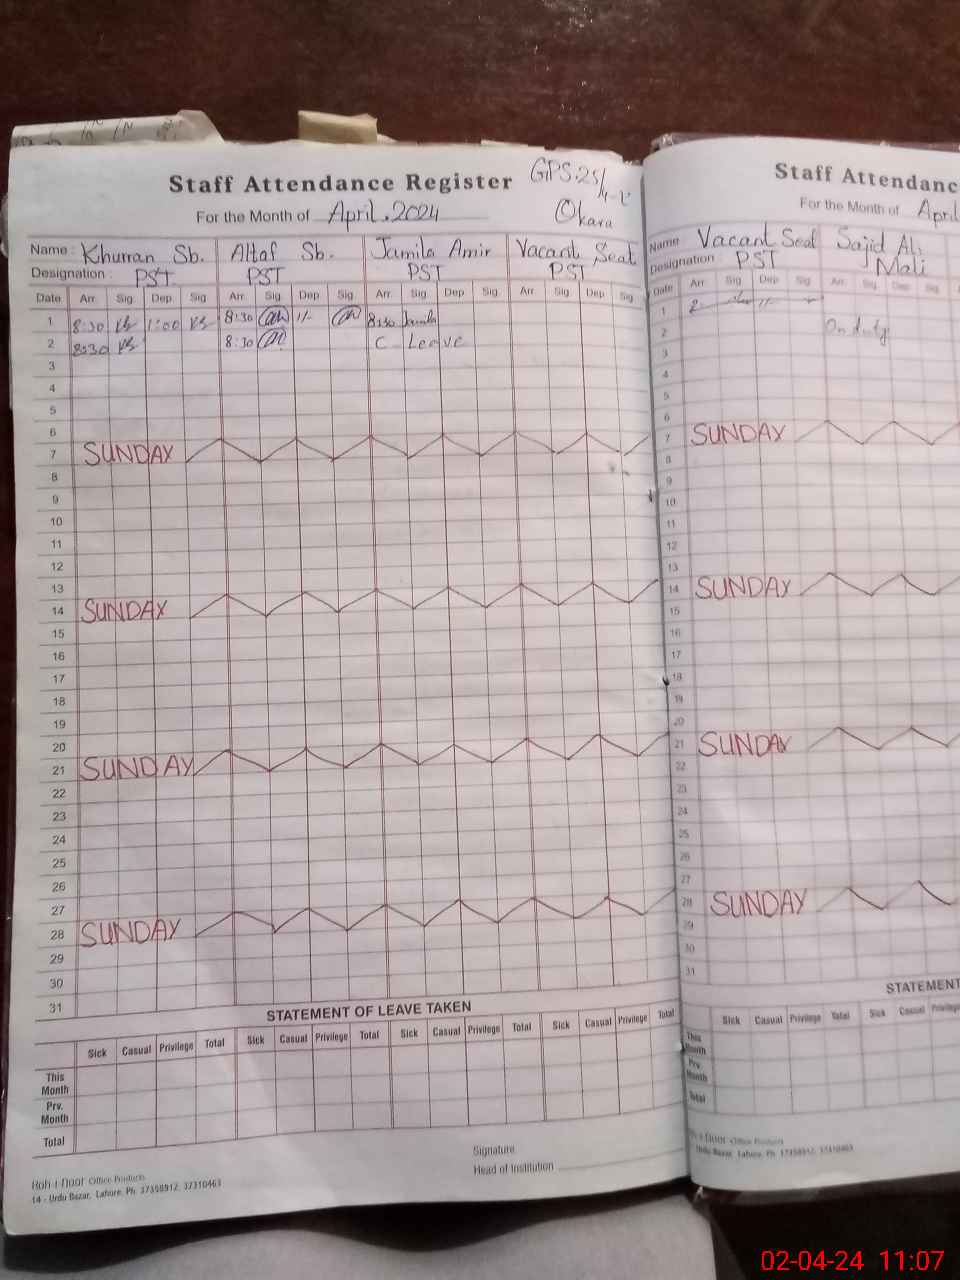 Staff Attendance Register
GPS.25/4-L
Okara
For the Month of April.2024
Name : Khurran Sb. Altaf Sb. Jamila Amir Vacant Seat
Designation : PST PST PST PST
Date Arr. Sig. Dep Sig. Arr. Sig. Dep Sig. Arr. Sig. Dep Sig. Arr. Sig. Dep Sig.
1 8:30 1:00 8:30 8:30 Jamila
2 8:30 8:30 C Leave
3
4
5
6
7 SUNDAY
8
9
10
11
12
13
14 SUNDAY
15
16
17
18
19
20
21 SUNDAY
22
23
24
25
26
27
28 SUNDAY
29
30
31
STATEMENT OF LEAVE TAKEN
Sick Casual Privilege Total Sick Casual Privilege Total Sick Casual Privilege Total Sick Casual Privilege Total
This Month
Prv. Month
Total
Signature
Head of Institution
Roh-i-Noor Office Products
14 - Urdu Bazar, Lahore, Ph: 37358912, 37310463
Staff Attendanc
For the Month of April
Name Vacant Seat Sajid Ali
Designation PST Mali
Date Arr. Sig. Dep Sig. Arr. Sig. Dep Sig
1
2 On duty
3
4
5
6
7 SUNDAY
8
9
10
11
12
13
14 SUNDAY
15
16
17
18
19
20
21 SUNDAY
22
23
24
25
26
27
28 SUNDAY
29
30
31
STATEMENT
Sick Casual Privilege Total Sick Casual Privilege
This Month
Prv. Month
Total
Office Products
Urdu Bazar, Lahore, Ph: 37358912, 37310463
02-04-24 11:07